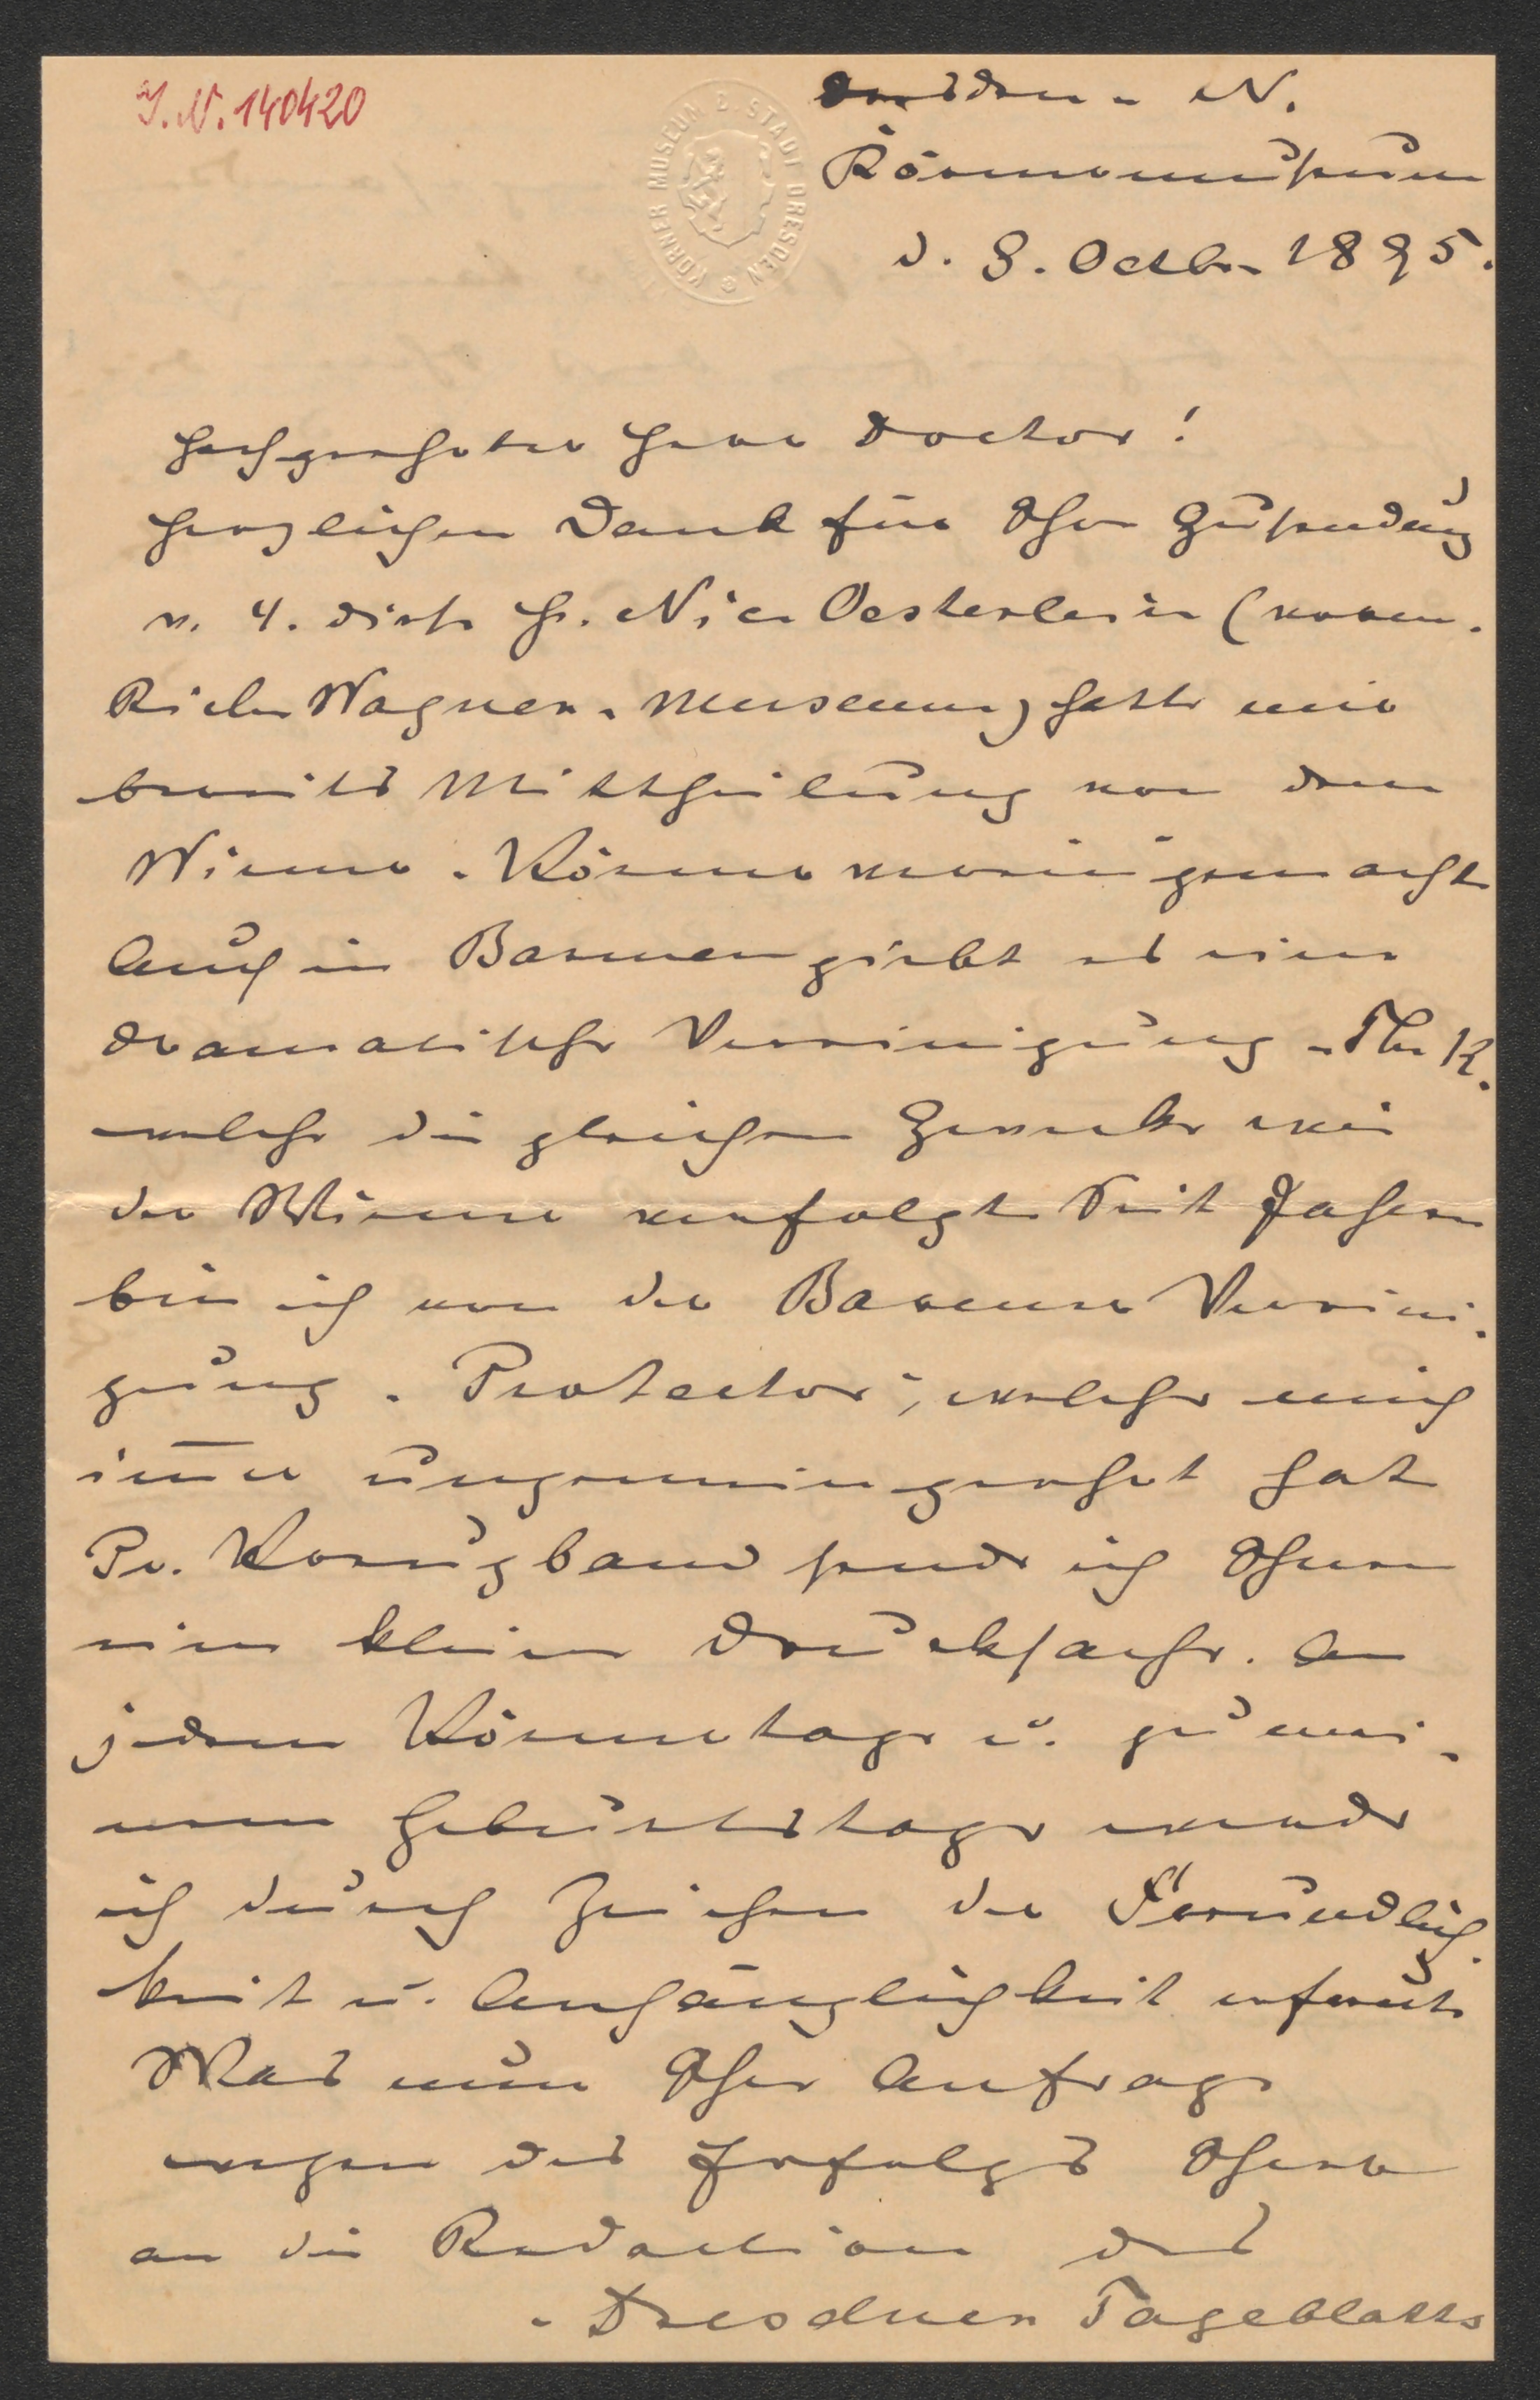 J. N. 140420
KÖRNER MUSEUM D. STADT DRESDEN
Dresden-N.
Körnermuseum
d. 8. Octbr. 1895.
Hochgeehrter Herr Doctor!
Herzlichen Dank für Ihre Zusendung
v. 4. dies. H. Nic. Oesterlein (vorm.
Rich. Wagner-Museum) hatte mir
bereits Mittheilung von dem
Wiener-Körnerverein gemacht
Auch in Barmen giebt es eine
dramatische Vereinigung - Th. K.
welche die gleichen Zwecke wie
der Wiener verfolgt. Seit Jahren
bin ich von der Barmer Vereini-
gung - Protector -, welche mich
immer ungemein geehrt hat
Pr. Kreuzband sende ich Ihnen
eine kleine Drucksache. An
jedem Körnertage u. zu mei-
nem Geburtstage werde
ich durch Zeichen der Freundlich-
keit u. Anhänglichkeit erfreut.
Was nun Ihre Anfrage
wegen des Erfolgs Ihrer
an die Redaction des
- Dresdner Tageblatts